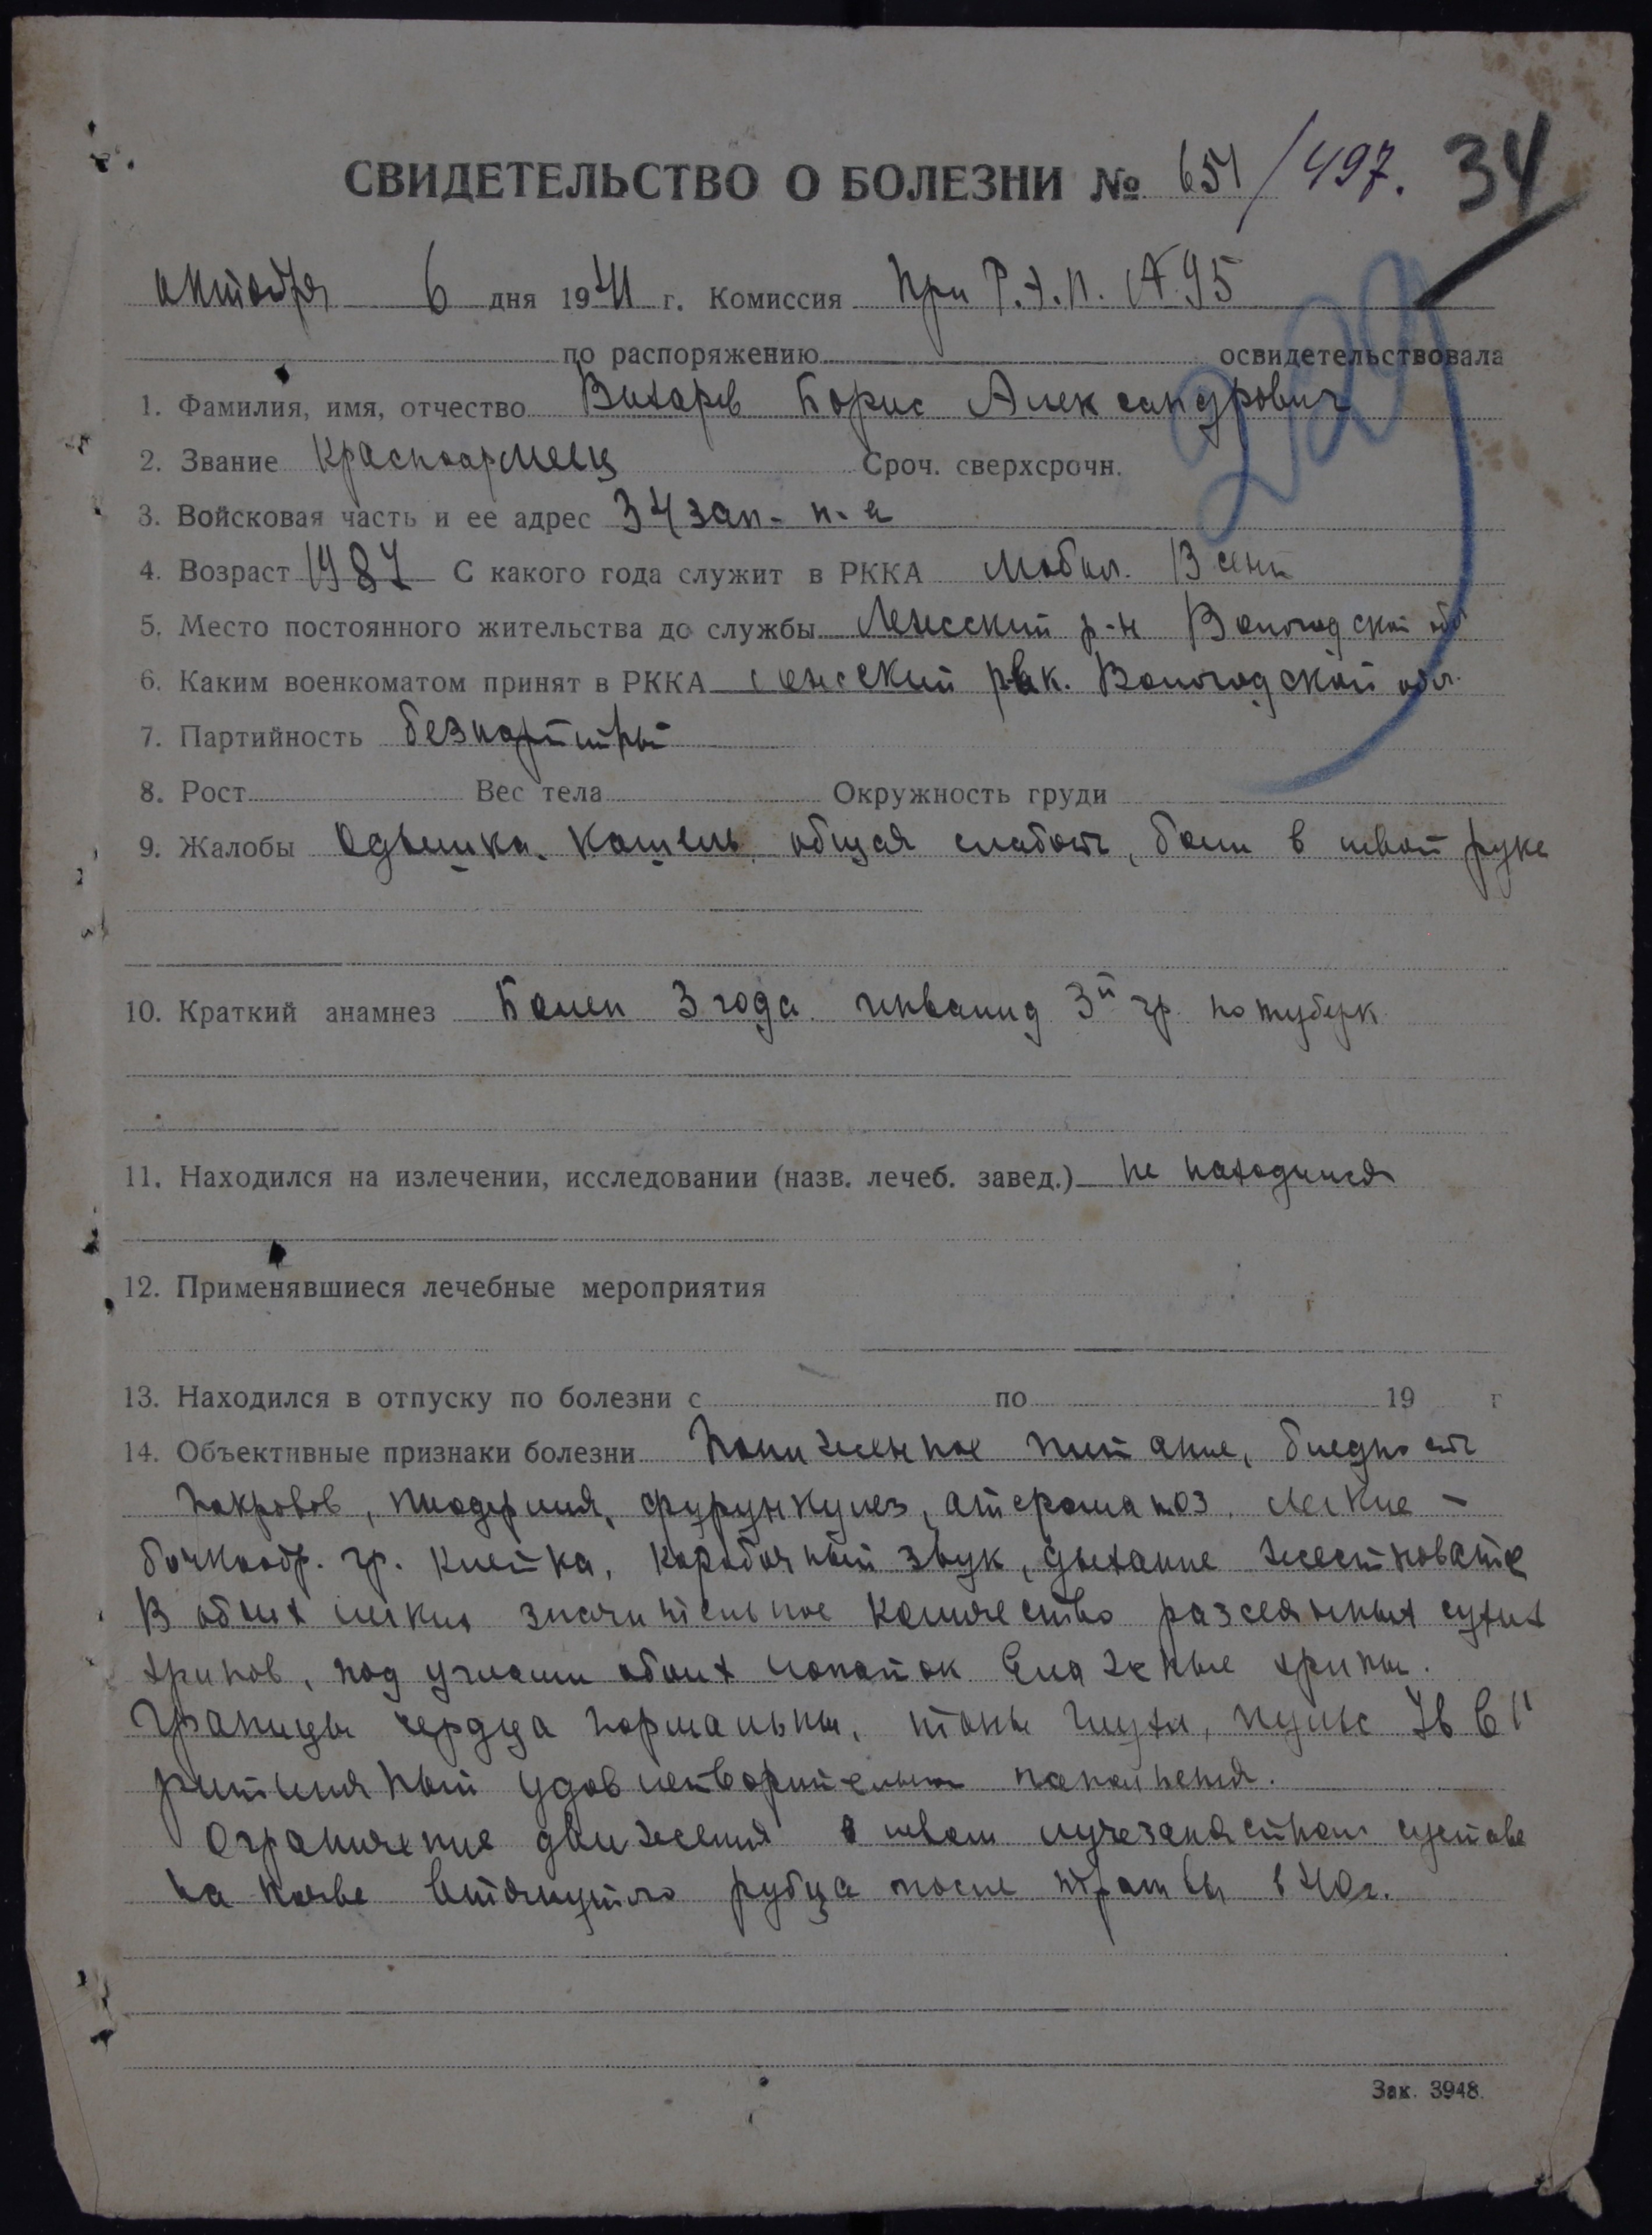 СВИДЕТЕЛЬСТВО О БОЛЕЗНИ № 651/497. 34
октября 6 дня 1941 г. Комиссия при Р.Э.П. № 95
229
по распоряжению освидетельствовала
1. Фамилия, имя, отчество Вихарев Борис Александрович
2. Звание Красноармеец Сроч. сверхсрочн.
3. Войсковая часть и ее адрес 34 зап. п-к
4. Возраст С какого года служит в РККА Мобил. 13 сент
5. Место постоянного жительства до службы р-н Вологодской обл
6. Каким военкоматом принят в РККА рвк. Вологодской обл.
7. Партийность безпартийный
8. Рост Вес тела Окружность груди
9. Жалобы Одышка. Кашель общая слабость, боли в левой руке
10. Краткий анамнез Болен 3 года. инвалид 3й гр. по туберк
11. Находился на излечении, исследовании (назв. лечеб. завед.) не находился
12. Применявшиеся лечебные мероприятия
13. Находился в отпуску по болезни с по 19 г
14. Объективные признаки болезни Пониженное питание, бледность
покровов, пиодермия, фурункулез, атероматоз. Легкие –
бочкообр. гр. клетка, коробочный звук, дыхание жестковатое
В обоих легких значительное количество разсеянных сухих
хрипов, под углами обоих лопаток влажные хрипы.
Границы сердца нормальны, тоны глухи, пульс в 1'
ритмичный удовлетворительного наполнения.
Ограничение движения в левом лучезапястном суставе
на почве втянутого рубца после травмы в 40 г.
Зак. 3948.